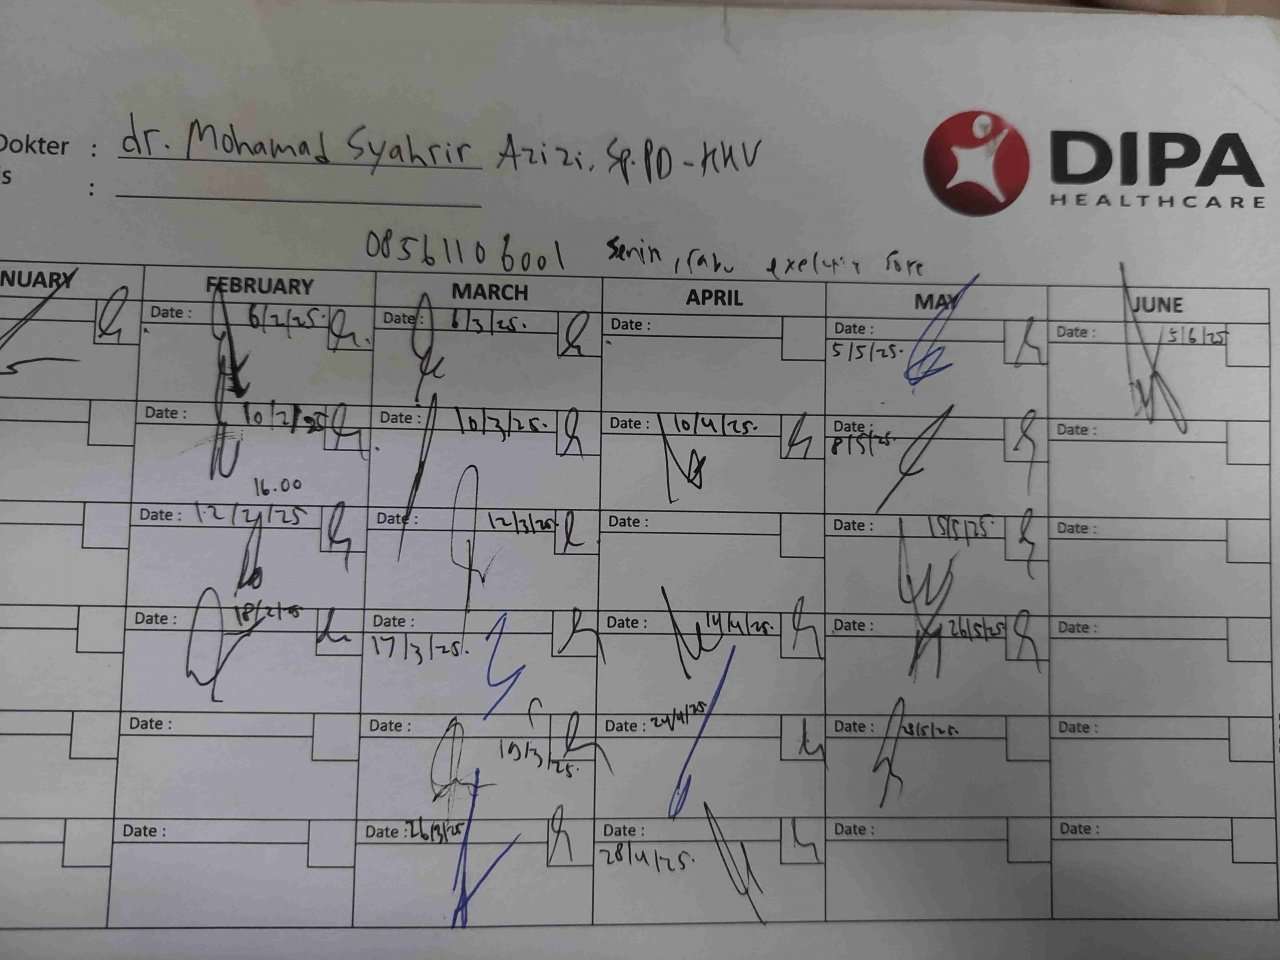 Dokter : dr. Mohamad Syahrir Azizi, Sp.PD-KHV
s :
DIPA
HEALTHCARE
08561106001 Senin, rabu sore
NUARY FEBRUARY MARCH APRIL MAY JUNE
Date : 6/2/25. Date : 6/3/25. Date : Date : 5/5/25. Date : 5/6/25
Date : 10/2/25 Date : 10/3/25. Date : 10/4/25. Date : 8/5/25. Date :
16.00
Date : 12/2/25 Date : 12/3/25. Date : Date : 15/5/25. Date :
Date : 18/2/25 Date : 17/3/25. Date : 14/4/25. Date : 26/5/25 Date :
Date : Date : 19/3/25. Date : 24/4/25 Date : 28/5/25. Date :
Date : Date : 26/3/25 Date : 28/4/25. Date : Date :